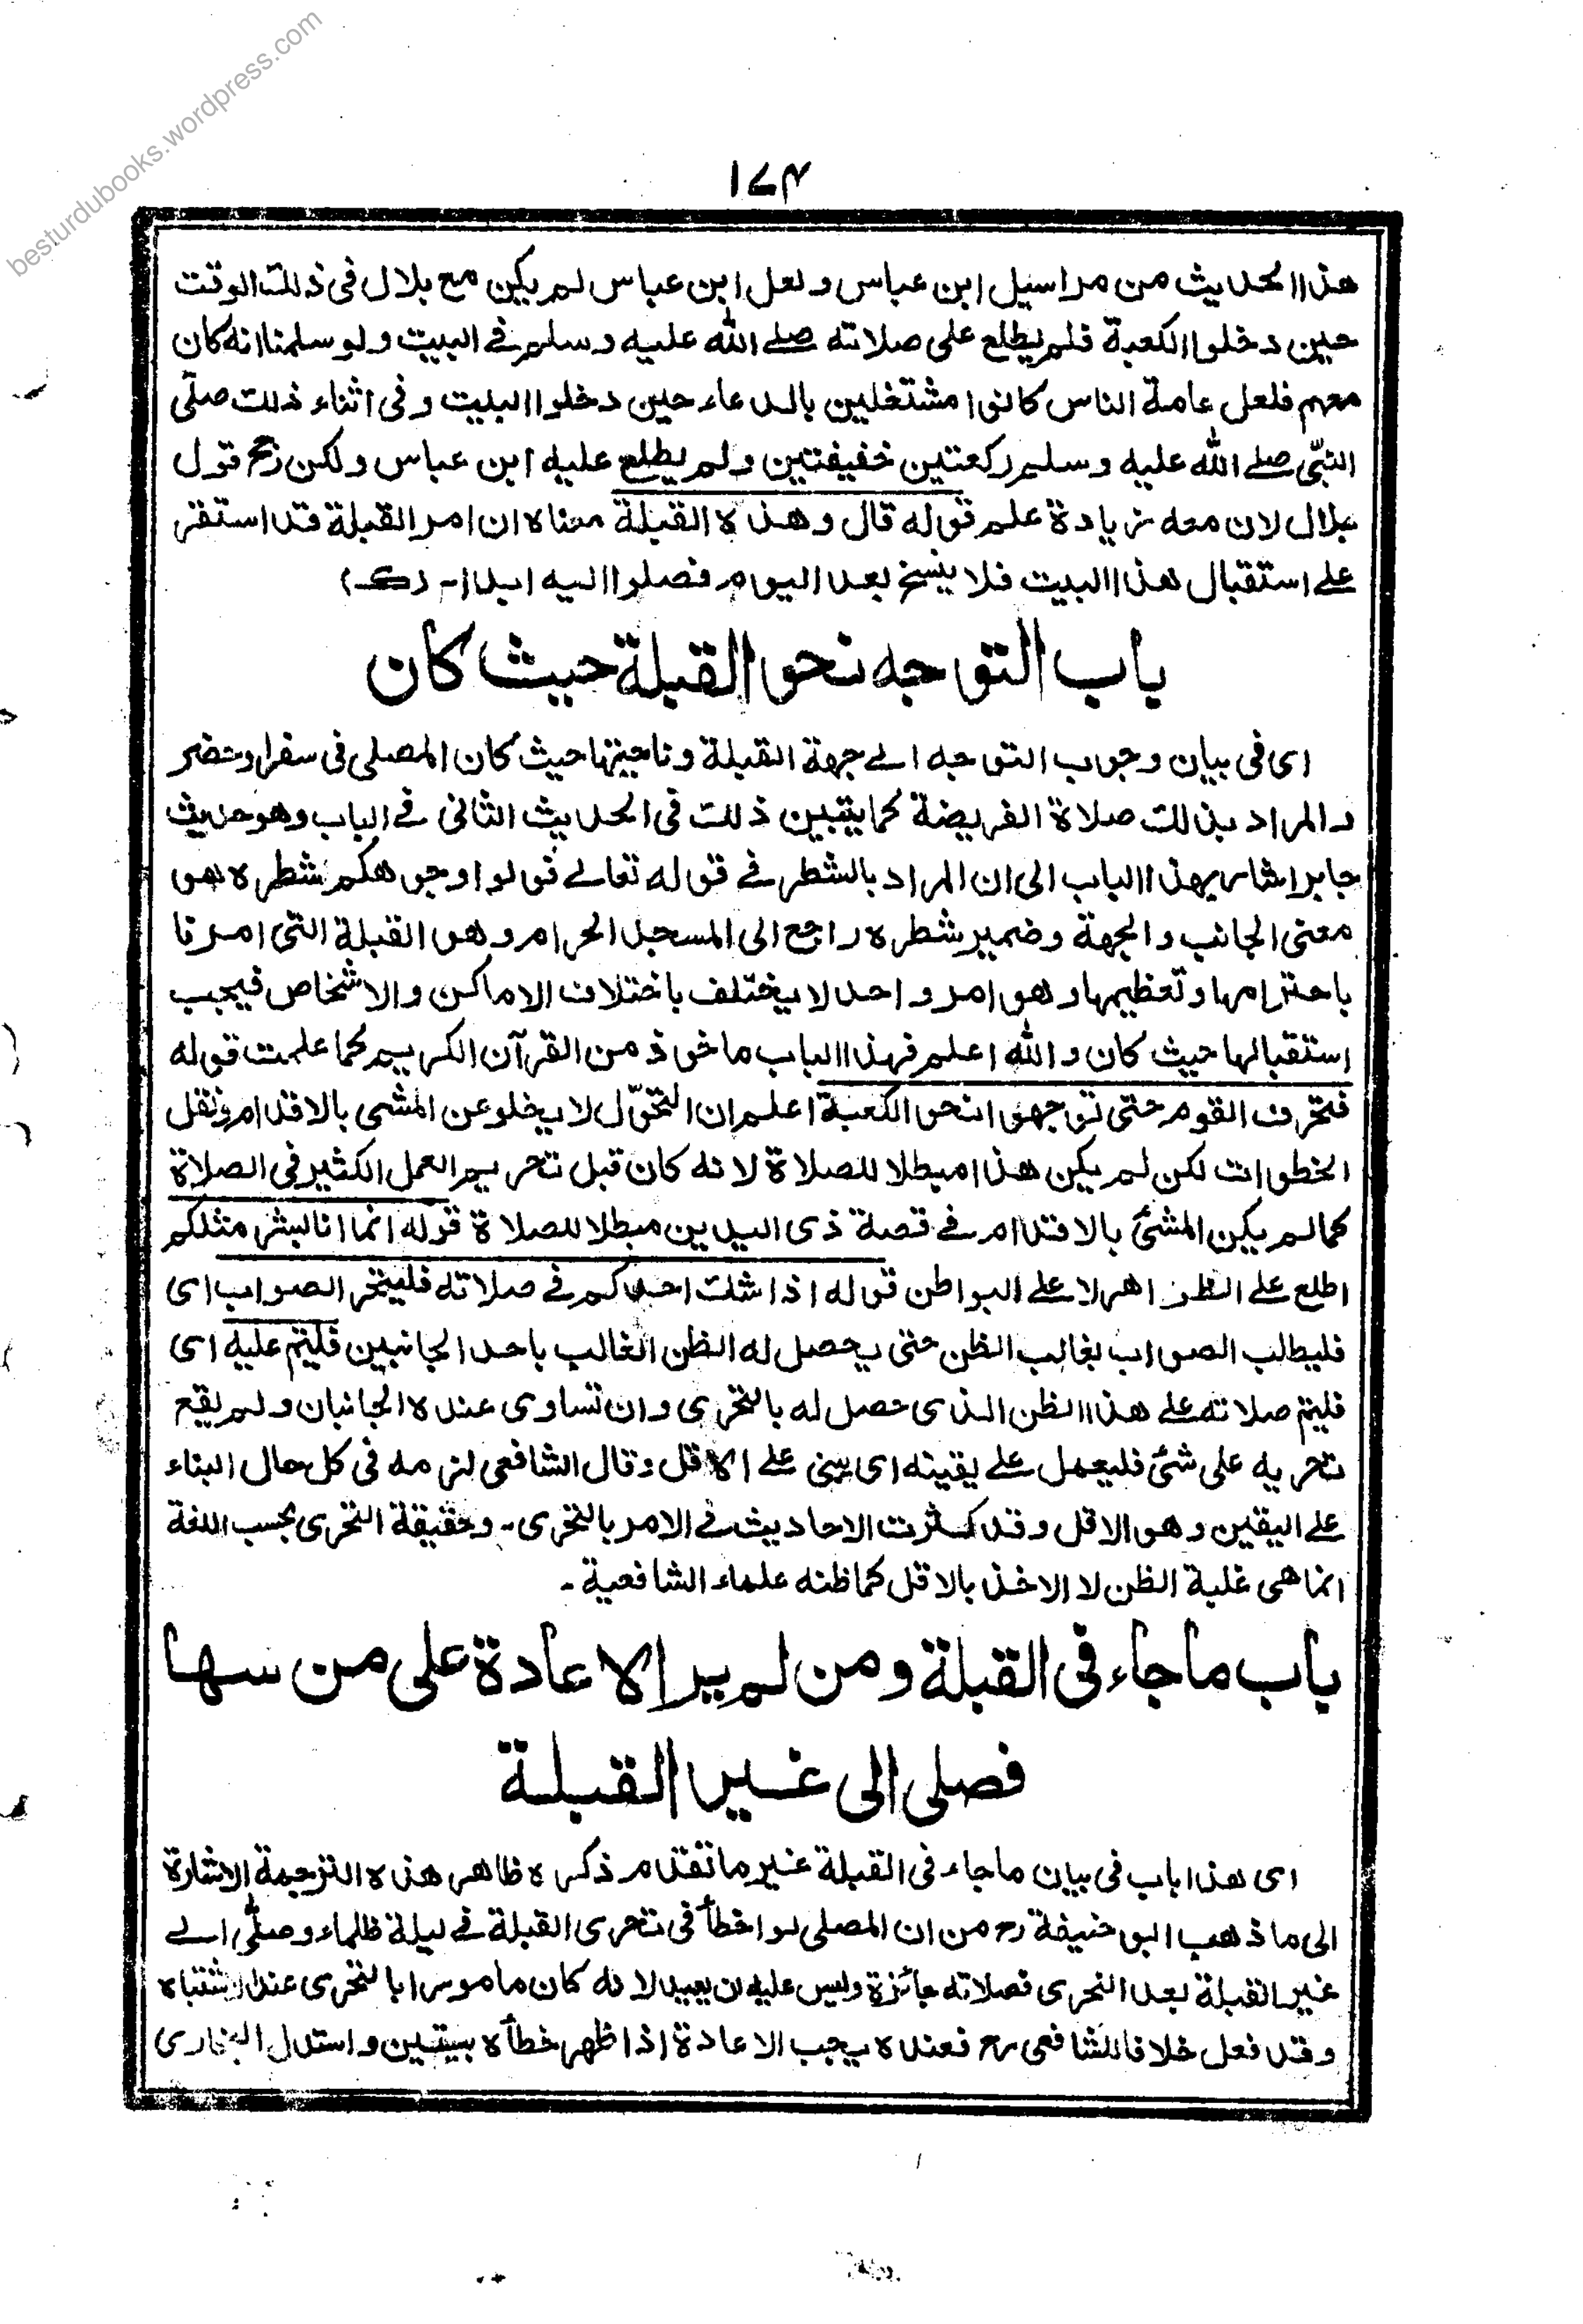 besturdubooks.wordpress.com
۱۷۴
هذا الحديث من مراسيل ابن عباس ولعل ابن عباس لم يكن مع بلال في ذلك الوقت
حين دخلوا الكعبة فلم يطلع على صلاته صلے الله عليه وسلم في البيت ولو سلمنا انه كان
معهم فلعل عامة الناس كانوا مشتغلين بالدعاء حين دخلوا البيت وفي اثناء ذلك صلّى
النبيّ صلے الله عليه وسلم ركعتين خفيفتين ولم يطلع عليه ابن عباس ولكن رجح قول
بلال لان معه زيادة علم قوله قال وهذه القبلة معناه ان امر القبلة قد استقر
علے استقبال هذا البيت فلا ينسخ بعد اليوم فصلوا اليه ابدا۔ (ك)
باب التوجه نحو القبلة حيث كان
اى فى بيان وجوب التوجه الے جهة القبلة وناحيتها حيث كان المصلى فى سفر او حضر
والمراد بذلك صلاة الفريضة كما يتبين ذلك فى الحديث الثانى فے الباب وهو حديث
جابر اشار بهذا الباب الى ان المراد بالشطر فے قوله تعالے فولوا وجوهكم شطره هو
معنى الجانب والجهة وضمير شطره راجع الى المسجد الحرام وهو القبلة التى امرنا
باحترامها وتعظيمها وهو امر واحد لا يختلف باختلاف الاماكن والاشخاص فيجب
استقبالها حيث كان والله اعلم فهذا الباب ماخوذ من القرآن الكريم كما علمت قوله
فتحرف القوم حتى توجهوا نحو الكعبة اعلم ان التحوّل لا يخلو عن المشى بالاقدام ونقل
الخطوات لكن لم يكن هذا مبطلا للصلاة لانه كان قبل تحريم العمل الكثير فى الصلاة
كما لم يكن المشئ بالاقدام فے قصة ذى اليدين مبطلا للصلاة قوله انما انا لبشر مثلكم
اطلع علے الظواهر لا علے البواطن قوله اذا شك احدكم فے صلاته فليتحر الصواب اى
فليطلب الصواب بغالب الظن حتى يحصل له الظن الغالب باحد الجانبين فليتم عليه اى
فليتم صلاته علے هذا الظن الذى حصل له بالتحرى وان تساوى عنده الجانبان ولم يقع
تحريه على شئ فليعمل علے يقينه اى يبنى علے الاقل وقال الشافعى لزمه فى كل حال البناء
علے اليقين وهو الاقل وقد كثرت الاحاديث فے الامر بالتحرى۔ وحقيقة التحرى بحسب اللغة
انما هى غلبة الظن لا الاخذ بالاقل كما ظنه علماء الشافعية۔
باب ما جاء فى القبلة ومن لم ير الاعادة على من سها
فصلى الى غير القبلة
اى هذا باب فى بيان ما جاء فى القبلة غير ما تقدم ذكره ظاهر هذه الترجمة الاشارة
الى ما ذهب ابو حنيفة رح من ان المصلى لو اخطأ فى تحرى القبلة فے ليلة ظلماء وصلّى الے
غير القبلة بعد التحرى فصلاته جائزة وليس عليه ان يعيد لانه كان مامورا بالتحرى عند اشتباه
وقد فعل خلافا للشافعى رح فعنده يجب الاعادة اذا ظهر خطأه بيقين واستدل البخارى